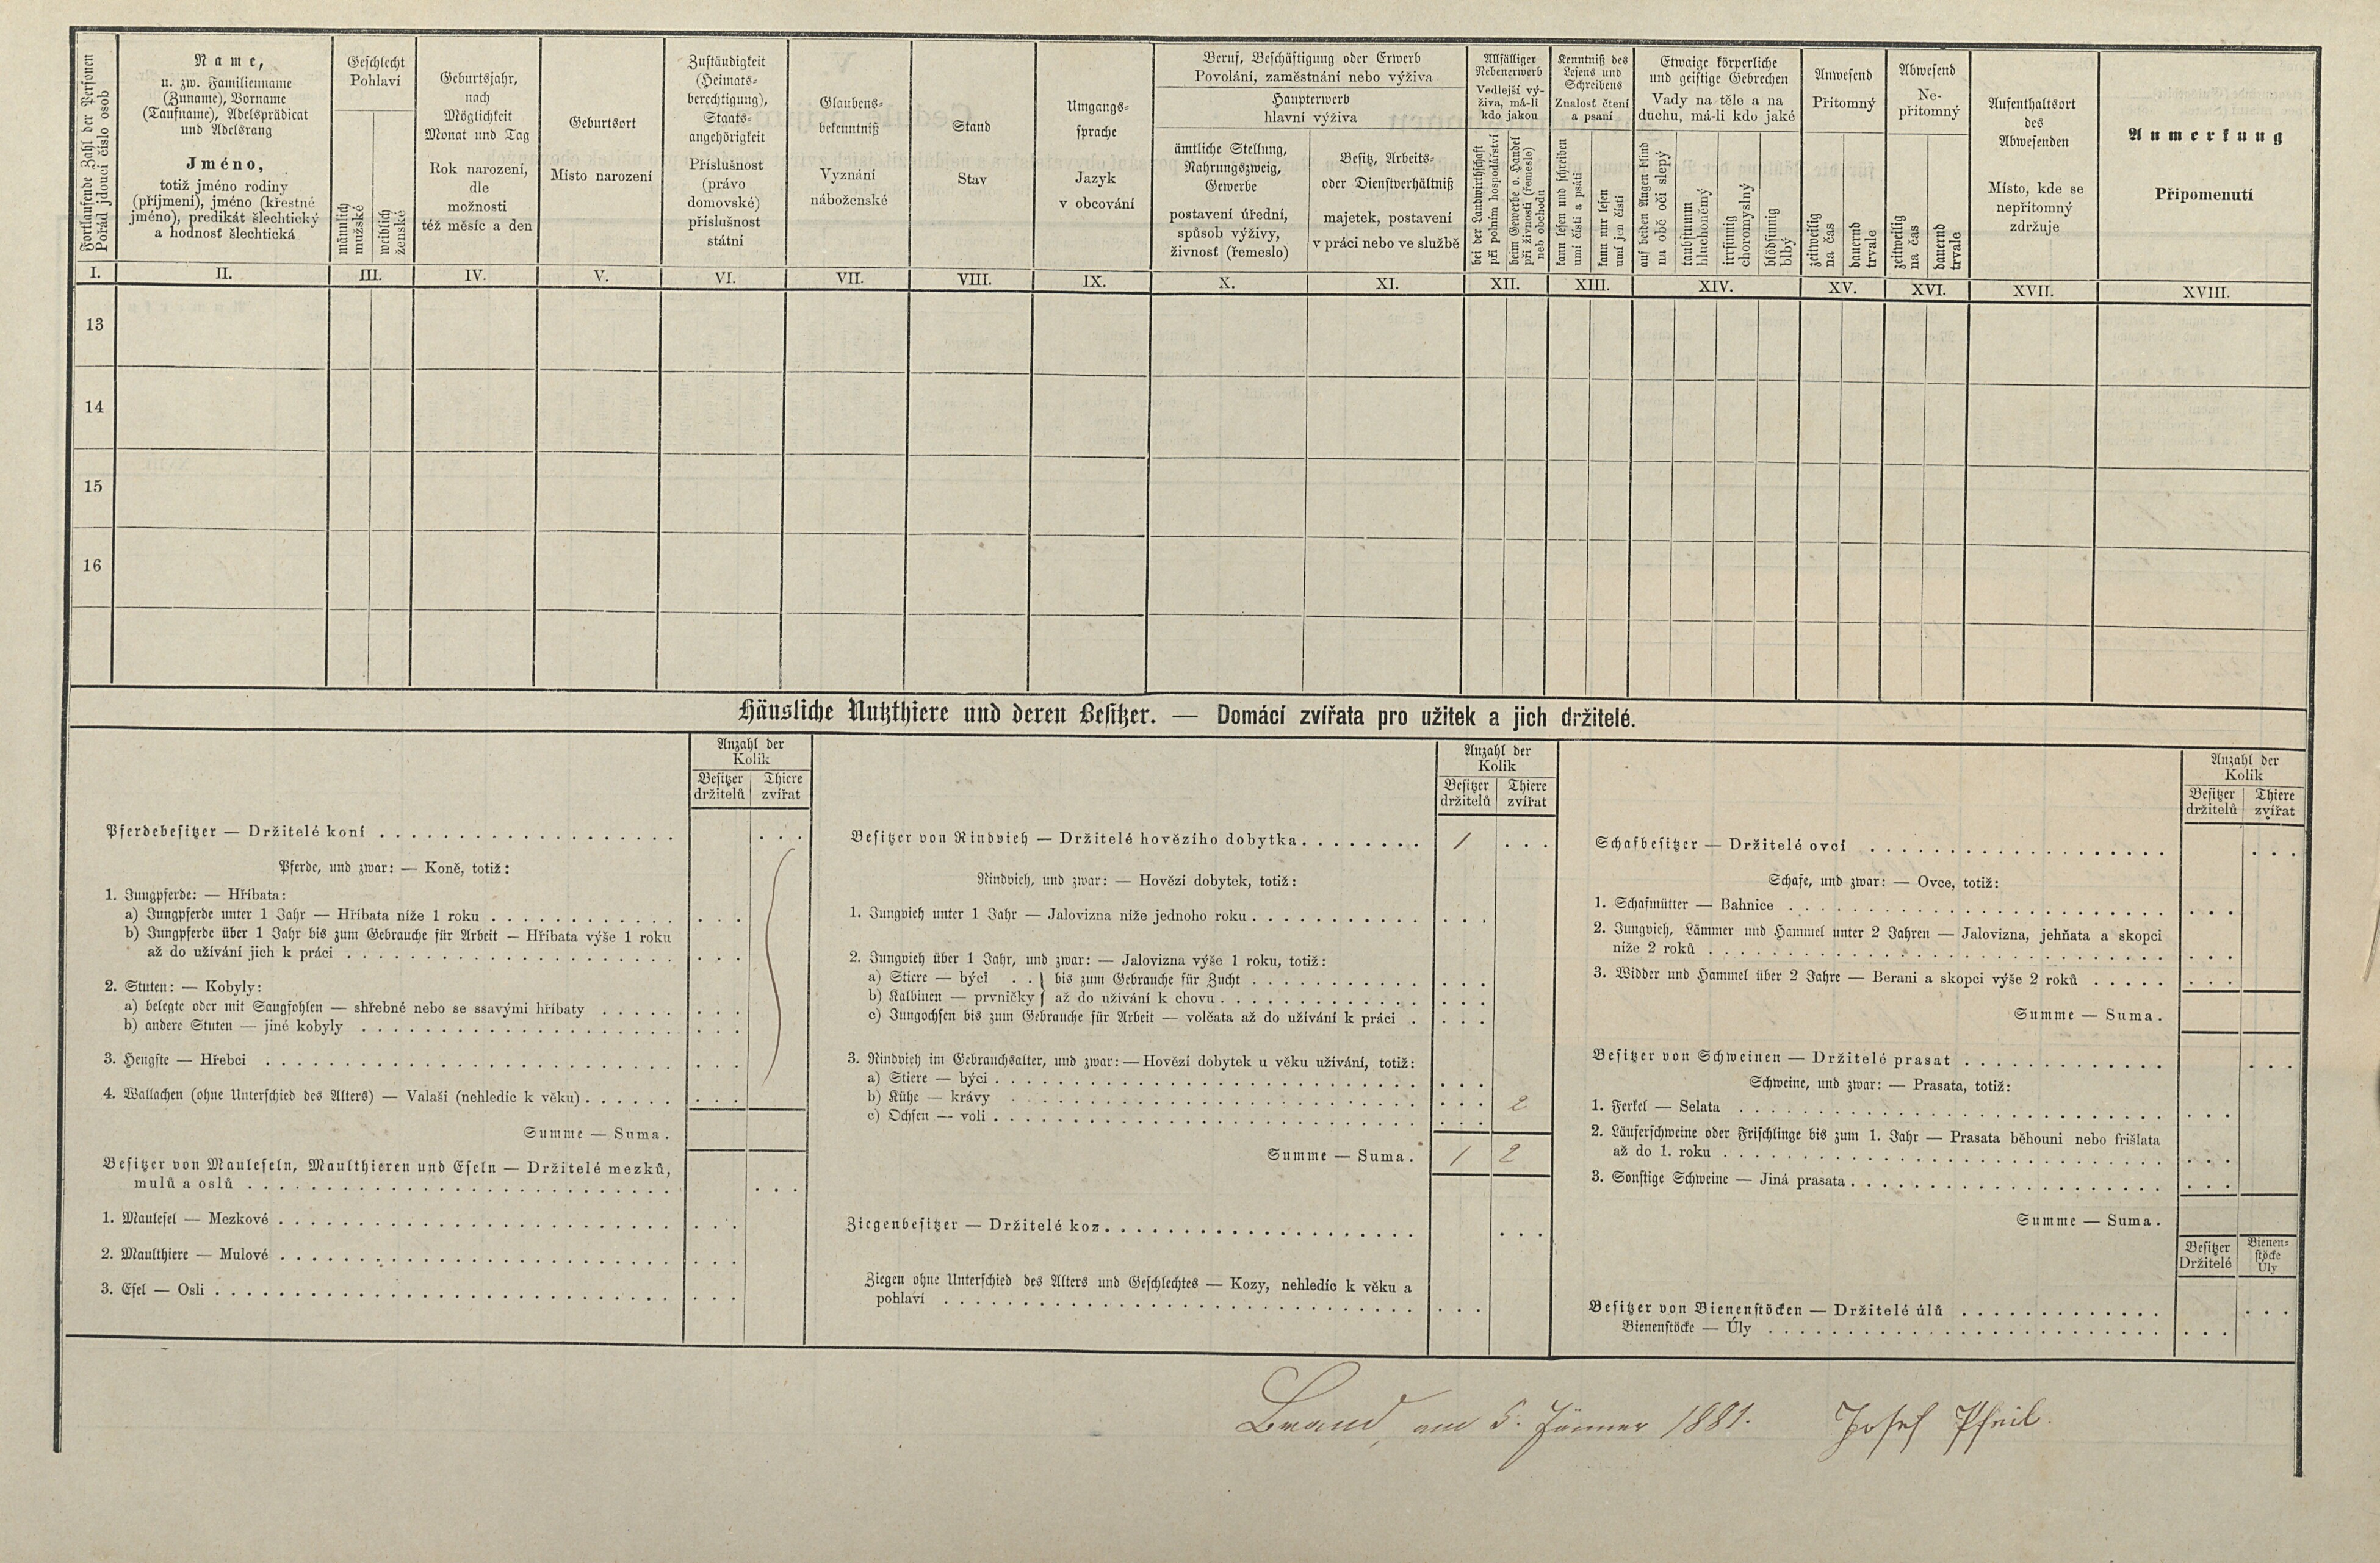 Fortlaufende Zahl der Personen
Pořád jdoucí číslo osob
Name,
u. zw. Familienname
(Zuname), Vorname
(Taufname), Adelsprädicat
und Adelsrang
Jméno,
totiž jméno rodiny
(příjmení), jméno (křestné
jméno), predikát šlechtický
a hodnosť šlechtická
Geschlecht
Pohlaví
männlich
mužské
weiblich
ženské
Geburtsjahr,
nach
Möglichkeit
Monat und Tag
Rok narození,
dle
možnosti
též měsíc a den
Geburtsort
Místo narození
Zuständigkeit
(Heimats-
berechtigung),
Staats-
angehörigkeit
Příslušnost
(právo
domovské)
příslušnost
státní
Glaubens-
bekenntniß
Vyznání
náboženské
Stand
Stav
Umgangs-
sprache
Jazyk
v obcování
Beruf, Beschäftigung oder Erwerb
Povolání, zaměstnání nebo výživa
Haupterwerb
hlavní výživa
ämtliche Stellung,
Nahrungszweig,
Gewerbe
postavení úřední,
spůsob výživy,
živnosť (řemeslo)
Besitz, Arbeits-
oder Dienstverhältniß
majetek, postavení
v práci nebo ve službě
Allfälliger
Nebenerwerb
Vedlejší vý-
živa, má-li
kdo jakou
bei der Landwirthschaft
při polním hospodářství
beim Gewerbe o. Handel
při živnosti (řemesle)
neb obchodu
Kenntniß des
Lesens und
Schreibens
Znalosť čtení
a psaní
kann lesen und schreiben
umí čísti a psáti
kann nur lesen
umí jen čísti
Etwaige körperliche
und geistige Gebrechen
Vady na těle a na
duchu, má-li kdo jaké
auf beiden Augen blind
na obě oči slepý
taubstumm
hluchoněmý
irrsinnig
choromyslný
blödsinnig
blbý
Anwesend
Přítomný
zeitweilig
na čas
dauernd
trvale
Abwesend
Ne-
přítomný
zeitweilig
na čas
dauernd
trvale
Aufenthaltsort
des
Abwesenden
Místo, kde se
nepřítomný
zdržuje
Anmerkung
Připomenutí
I. II. III. IV. V. VI. VII. VIII. IX. X. XI. XII. XIII. XIV. XV. XVI. XVII. XVIII.
13
14
15
16
Häusliche Nutzthiere und deren Besitzer. — Domácí zvířata pro užitek a jich držitelé.
Anzahl der
Kolik
Besitzer Thiere
držitelů zvířat
Pferdebesitzer — Držitelé koní
Pferde, und zwar: — Koně, totiž:
1. Jungpferde: — Hříbata:
a) Jungpferde unter 1 Jahr — Hříbata níže 1 roku
b) Jungpferde über 1 Jahr bis zum Gebrauche für Arbeit — Hříbata výše 1 roku
až do užívání jich k práci
2. Stuten: — Kobyly:
a) belegte oder mit Saugfohlen — shřebné nebo se ssavými hříbaty
b) andere Stuten — jiné kobyly
3. Hengste — Hřebci
4. Wallachen (ohne Unterschied des Alters) — Valaši (nehledíc k věku)
Summe — Suma.
Besitzer von Mauleseln, Maulthieren und Eseln — Držitelé mezků,
mulů a oslů
1. Maulesel — Mezkové
2. Maulthiere — Mulové
3. Esel — Osli
Anzahl der
Kolik
Besitzer Thiere
držitelů zvířat
Besitzer von Rindvieh — Držitelé hovězího dobytka 1
Rindvieh, und zwar: — Hovězí dobytek, totiž:
1. Jungvieh unter 1 Jahr — Jalovizna níže jednoho roku
2. Jungvieh über 1 Jahr, und zwar: — Jalovizna výše 1 roku, totiž:
a) Stiere — býci . . } bis zum Gebrauche für Zucht
b) Kalbinen — prvničky } až do užívání k chovu
c) Jungochsen bis zum Gebrauche für Arbeit — volčata až do užívání k práci
3. Rindvieh im Gebrauchsalter, und zwar: — Hovězí dobytek u věku užívání, totiž:
a) Stiere — býci
b) Kühe — krávy 2
c) Ochsen — voli
Summe — Suma. 1 2
Ziegenbesitzer — Držitelé koz
Ziegen ohne Unterschied des Alters und Geschlechtes — Kozy, nehledíc k věku a
pohlaví
Anzahl der
Kolik
Besitzer Thiere
držitelů zvířat
Schafbesitzer — Držitelé ovcí
Schafe, und zwar: — Ovce, totiž:
1. Schafmütter — Bahnice
2. Jungvieh, Lämmer und Hammel unter 2 Jahren — Jalovizna, jehňata a skopci
níže 2 roků
3. Widder und Hammel über 2 Jahre — Berani a skopci výše 2 roků
Summe — Suma.
Besitzer von Schweinen — Držitelé prasat
Schweine, und zwar: — Prasata, totiž:
1. Ferkel — Selata
2. Läuferschweine oder Frischlinge bis zum 1. Jahr — Prasata běhouni nebo frišlata
až do 1. roku
3. Sonstige Schweine — Jiná prasata
Summe — Suma.
Besitzer
Držitelé
Bienen-
stöcke
Úly
Besitzer von Bienenstöcken — Držitelé úlů
Bienenstöcke — Úly
Brand, am 5. Jänner 1881. Josef Pfeil